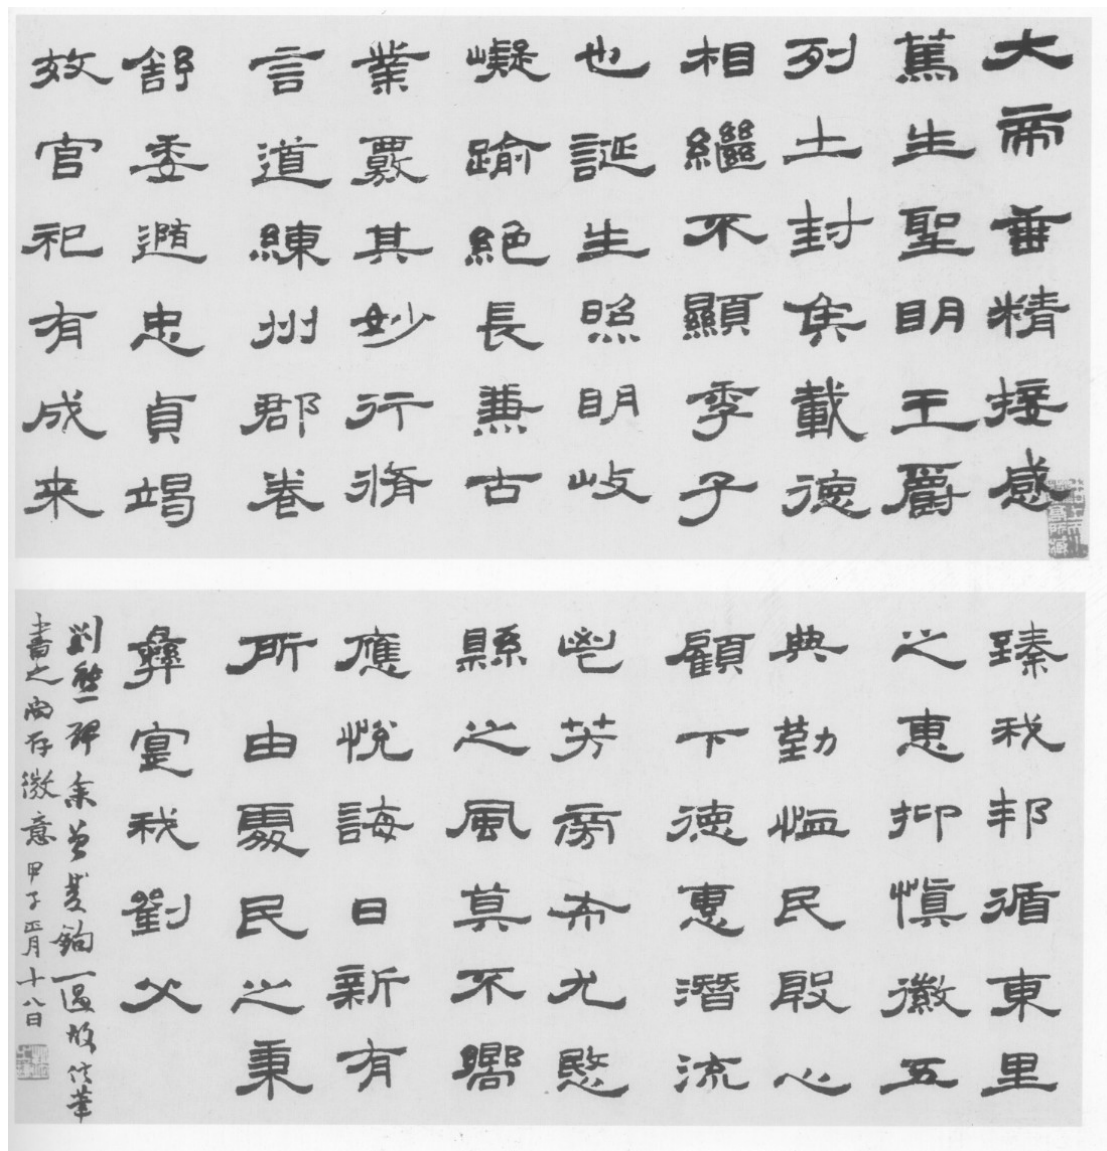 大帝垂精接感
篤生聖明王爵
列土封矦載德
相繼不顯季子
也誕生照明岐
嶷踰絕長兼古
業覈其妙行脩
言道練州郡卷
舒委隨忠貞竭
效官祀有成来
臻我邦循東里
之惠抑慎徽五
典勤恤民殷心
顧下德惠潛流
鬯芳旁布尤愍
縣之風莫不嚮
應悅誨日新有
所由處民之秉
彝寔我劉父
劉熊碑余曾雙鉤一過故信筆
書之尚存微意甲子正月十八日